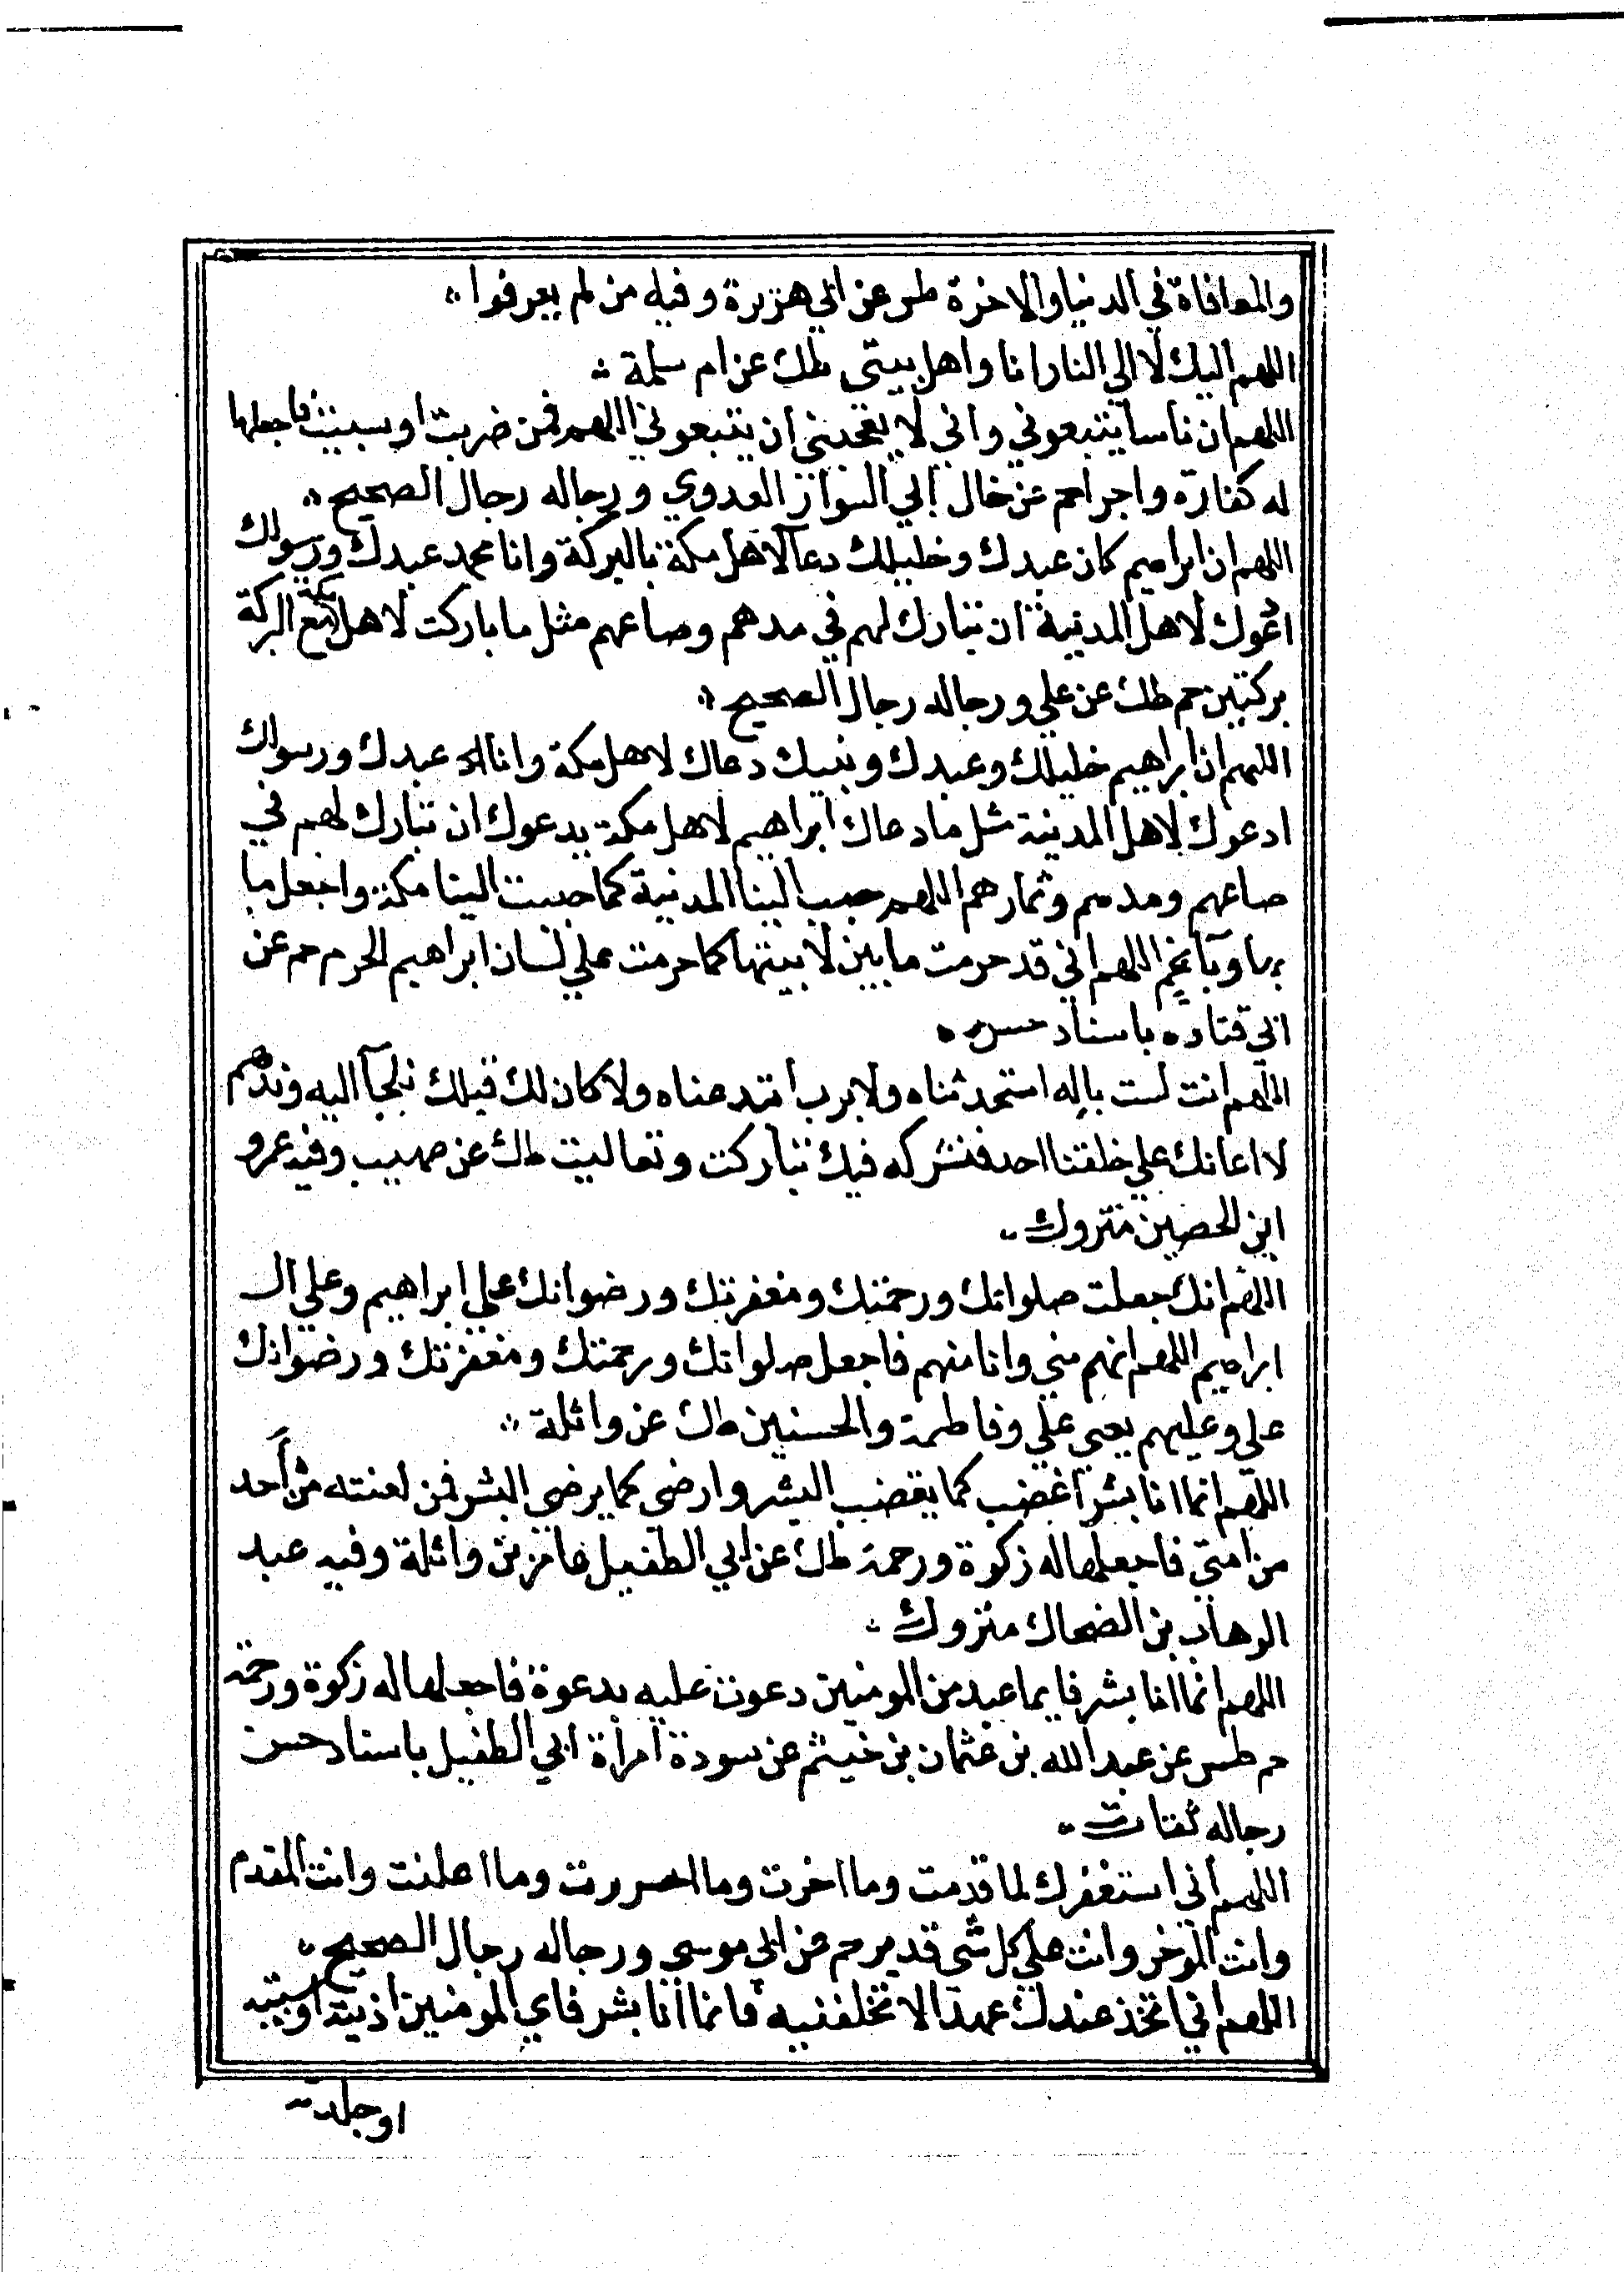 والمعافاة في الدنيا والاخرة طس عن ابي هريرة وفيه من لم يعرفوا
اللهم اليك لا الي النار انا واهل بيتي طك عن ام سلمة
اللهم ان ناسا يتبعوني واني لا يعجبني ان يتبعوني اللهم فمن ضربت او سببت فاجعلها
له كفارة واجرا حم عن خال ابي السوار العدوي ورجاله رجال الصحيح
اللهم ان ابراهيم كان عبدك وخليلك دعا لاهل مكة بالبركة وانا محمد عبدك ورسولك
ادعوك لاهل المدينة ان تبارك لهم في مدهم وصاعهم مثل ما باركت لاهل مكة مع البركة
بركتين حم طك عن علي ورجاله رجال الصحيح
اللهم ان ابراهيم خليلك وعبدك ونبيك دعاك لاهل مكة وانا عبدك ورسولك
ادعوك لاهل المدينة مثل ما دعاك ابراهيم لاهل مكة يدعوك ان تبارك لهم في
صاعهم ومدهم وثمارهم اللهم حبب الينا المدينة كما حببت الينا مكة واجعل ما
بها وبآ بخم اللهم اني قد حرمت ما بين لابيتها كما حرمت علي لسان ابراهيم الحرم حم عن
ابي قتادة باسناد حسن
اللهم انت لست باله استحدثناه ولا برب ابتدعناه ولا كان لك قبلك نلجآ اليه ونذهم
لا اعانك علي خلقنا احد فنشركه فيك تباركت وتعاليت طك عن صهيب وفيه عمرو
ابن الحصين متروك
اللهم انك جعلت صلواتك ورحمتك ومغفرتك ورضوانك علي ابراهيم وعلي ال
ابراهيم اللهم انهم مني وانا منهم فاجعل صلواتك ورحمتك ومغفرتك ورضوانك
علي وعليهم يعني علي وفاطمة والحسنين طك عن واثلة
اللهم انما انا بشر اغضب كما يغضب البشر وارضي كما يرضي البشر فمن لعنته من احد
من امتي فاجعلها له زكوة ورحمة طك عن ابي الطفيل عامر بن واثلة وفيه عبد
الوهاب بن الضحاك متروك
اللهم انما انا بشر فايما عبد من المومنين دعوت عليه بدعوة فاجعلها له زكوة ورحمة
حم طس عن عبد الله بن عثمان بن خيثم عن سودة امرأة ابي الطفيل باسناد حسن
رجاله ثقات
اللهم اني استغفرك لما قدمت وما اخرت وما اسررت وما اعلنت وانت المقدم
وانت الموخر وانت علي كل شي قدير حم عن ابي موسي ورجاله رجال الصحيح
اللهم اني اتخذ عندك عهدا لا تخلفنيه فانما انا بشر فاي المومنين اذيته او سببته
او جلدته